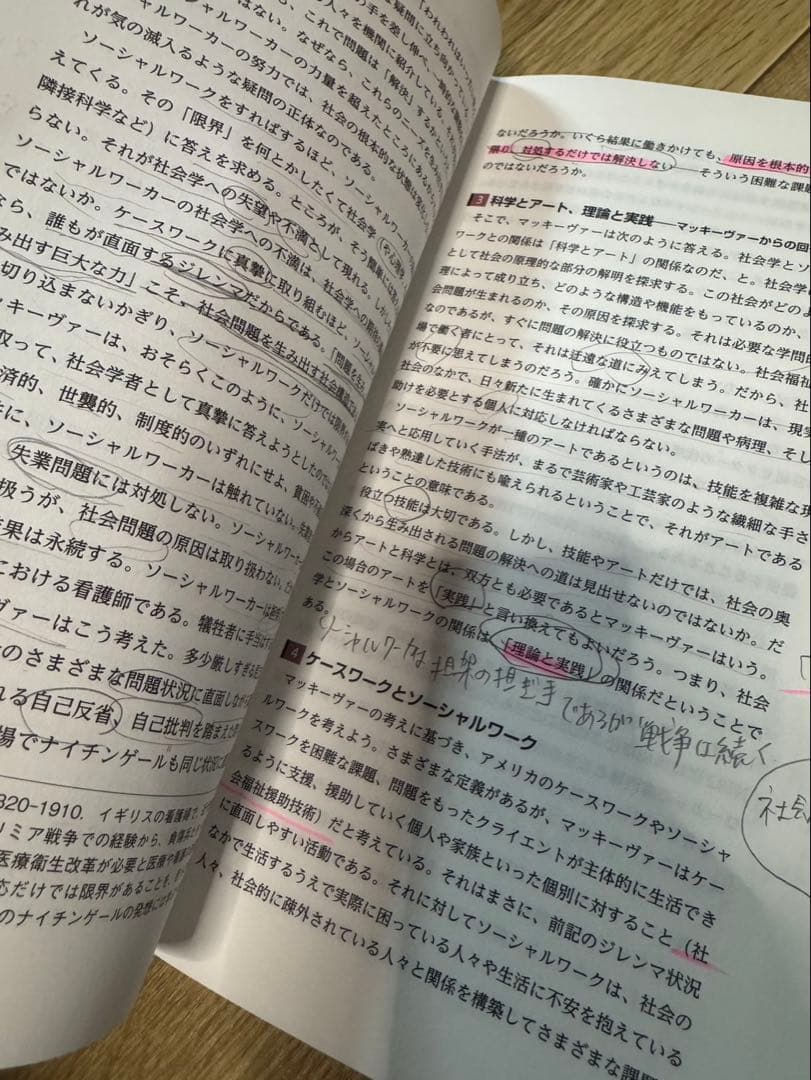 「われわれはいった
疑問に立ち向かってい
の手を差し伸べ、一時的
人々を機関に紹介している。
、これで問題は「解決」するかという
はない。なぜなら、これらのニーズを生み
ーシャルワーカーの力量を超えたところにあるから
れが気の滅入るような疑問の正体なのである。
ソーシャルワーカーの努力では、社会の根本的な状態は変わらない
ソーシャルワークをすればするほど、ソーシャルワーカー
えてくる。その「限界」を何とかしたくて社会学（や心理学
隣接科学など）に答えを求める。ところが、そう簡単には
らない。それが社会学への失望や不満として現れる。しかし
ソーシャルワーカーの社会学への不満は、社会学への
ではないか。ケースワークに真摯に取り組むほど、ソーシャル
なら、誰もが直面するジレンマだからである。「問題を生み
み出す巨大な力」こそ、社会問題を生み出す社会構造
切り込まないかぎり、ソーシャルワークだけでは
ッキーヴァーは、おそらくこのように、ソーシャル
取って、社会学者として真摯に答えようとしたので
済的、世襲的、制度的のいずれにせよ、貧困や
に、ソーシャルワーカーは触れていない。失業
失業問題には対処しない。ソーシャルワーカー
扱うが、社会問題の原因は取り扱わない。
果は永続する。ソーシャルワーカーは
における看護師である。犠牲者に手当は
ヴァーはこう考えた。多少厳しすぎる
のさまざまな問題状況に直面しながら
れる自己反省、自己批判を踏まえた
場でナイチンゲールも同じ状況に
820-1910. イギリスの看護師で、
リミア戦争での経験から、負傷兵
医療衛生改革が必要と医療や看護
応だけでは限界があることを、
のナイチンゲールの発想には
ないだろうか。いくら結果に働きかけても、原因を根本的
限り、対処するだけでは解決しない――そういう困難な課題
のではないだろうか。
3 科学とアート、理論と実践――マッキーヴァーからの回
そこで、マッキーヴァーは次のように答える。社会学とソ
ワークとの関係は「科学とアート」の関係なのだ、と。社会学
として社会の原理的な部分の解明を探求する。この社会がどのよ
理によって成り立ち、どのような構造や機能をもっているのか、
会問題が生まれるのか、その原因を探求する。それは必要な学問的
なのであるが、すぐに問題の解決に役立つものではない。社会福祉
場で働く者にとって、それは迂遠な道にみえてしまう。だから、社
が不要に思えてしまうのだろう。確かにソーシャルワーカーは、現実
社会のなかで、日々新たに生まれてくるさまざまな問題や病理、そし
助けを必要とする個人に対応しなければならない。
ソーシャルワークが一種のアートであるというのは、技能を複雑な現
実へと応用していく手法が、まるで芸術家や工芸家のような繊細な手さ
ばきや熟達した技術にも喩えられるということで、それがアートである
ということの意味である。
役立つ技能は大切である。しかし、技能やアートだけでは、社会の奥
深くから生み出される問題の解決への道は見出せないのではないか。だ
からアートと科学とは、双方とも必要であるとマッキーヴァーはいう。
この場合のアートを「実践」と言い換えてもよいだろう。つまり、社会
学とソーシャルワークの関係は「理論と実践」の関係だということで
ある。
ソーシャルワーカーは担架の担ぎ手であるが"戦争は続く
4 ケースワークとソーシャルワーク
マッキーヴァーの考えに基づき、アメリカのケースワークやソーシャ
ルワークを考えよう。さまざまな定義があるが、マッキーヴァーはケー
スワークを困難な課題、問題をもったクライエントが主体的に生活でき
るように支援、援助していく個人や家族といった個別に対すること（社
会福祉援助技術）だと考えている。それはまさに、前記のジレンマ状況
に直面しやすい活動である。それに対してソーシャルワークは、社会の
なかで生活するうえで実際に困っている人々や生活に不安を抱えている
人々、社会的に疎外されている人々と関係を構築してさまざまな課題
社会